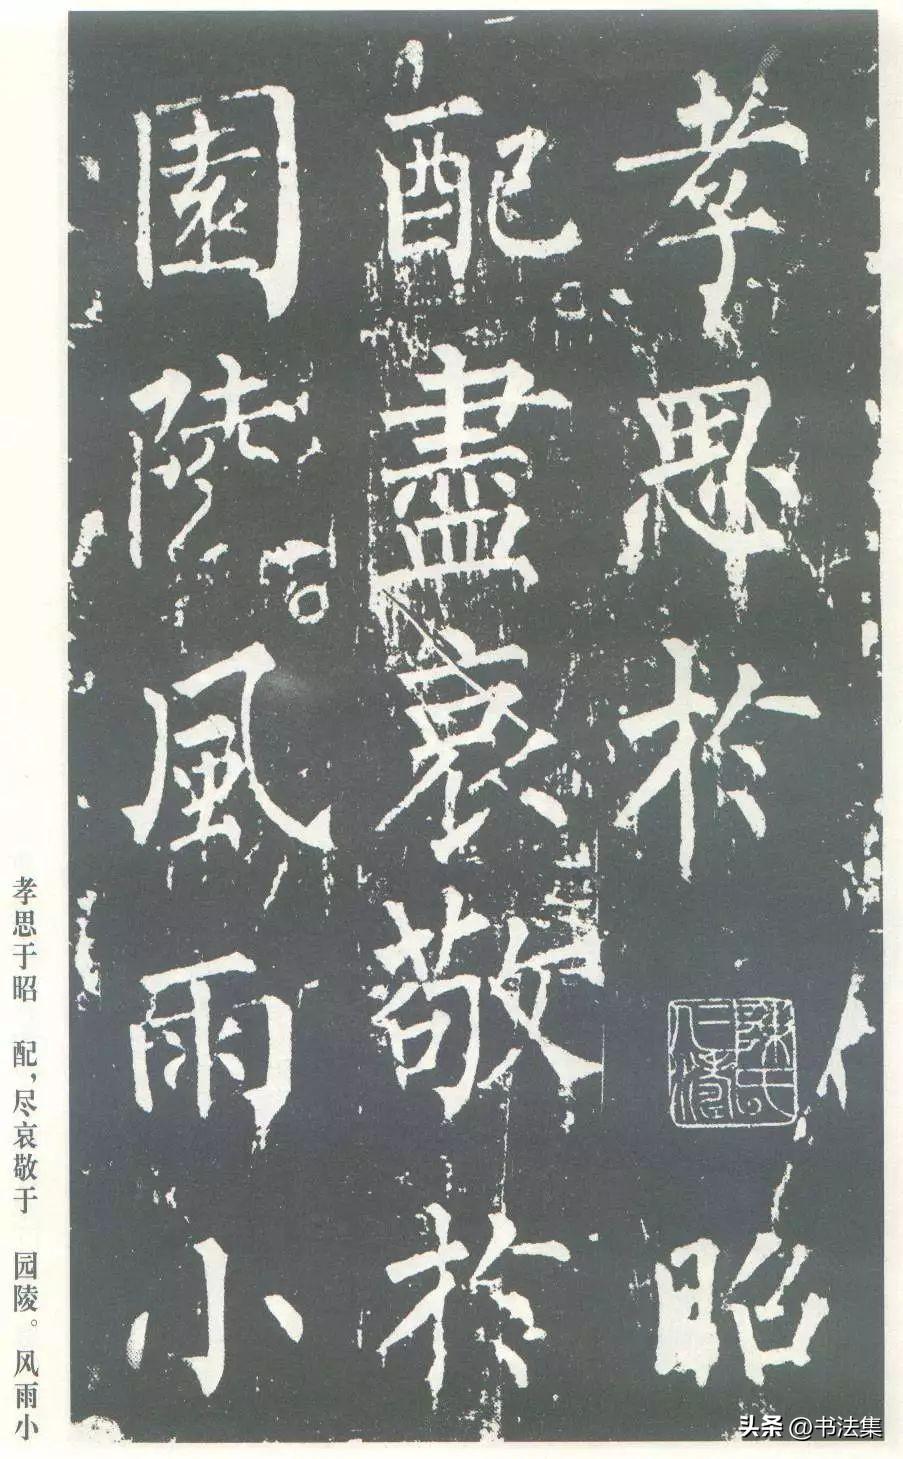 孝思於昭
配盡哀敬於
園陵風雨小
孝思于昭 配，尽哀敬于 园陵。风雨小
头条 @书法集